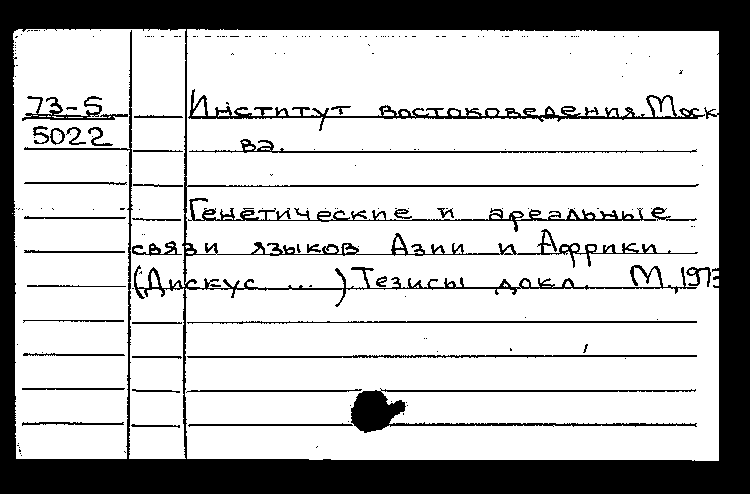 73-5
5022
Институт востоковедения. Моск-
ва.
Генетические и ареальные
связи языков Азии и Африки.
(Дискус ...) Тезисы докл. М., 1973